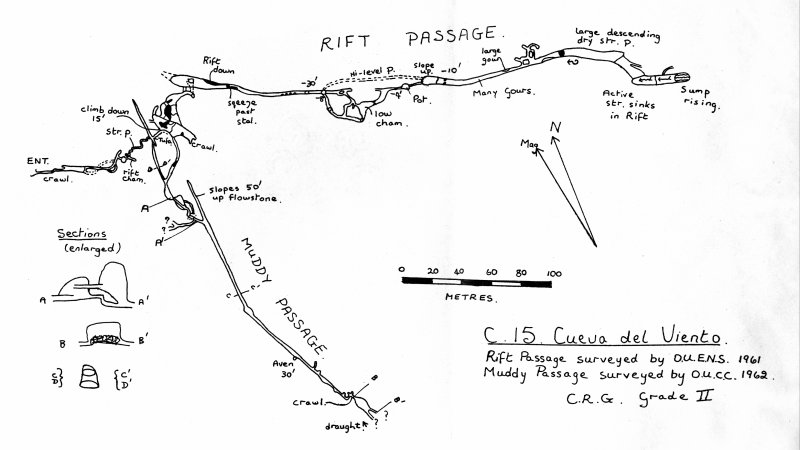 RIFT PASSAGE.
large descending
dry str. P.
Rift
down
squeeze
past
stal.
-30'
Hi-level P.
slope
up.
-10'
-4'
Pot.
low
cham.
large
gour
Many Gours.
Active
str. sinks
in Rift
Sump
rising.
climb down
15'
Str. P.
Tufa
crawl.
ENT.
crawl.
rift
cham.
Slopes 50'
up flowstone.
A
A'
?
?
N
Mag
MUDDY PASSAGE.
C
C'
Sections
(enlarged)
A
A'
B
B'
C}
D}
{C'
D'
0 20 40 60 80 100
METRES.
Aven
30'
crawl.
draught
?
?
B
B'
C.15. Cueva del Viento.
Rift Passage surveyed by O.U.E.N.S. 1961
Muddy Passage surveyed by O.U.C.C. 1962.
C.R.G. Grade II